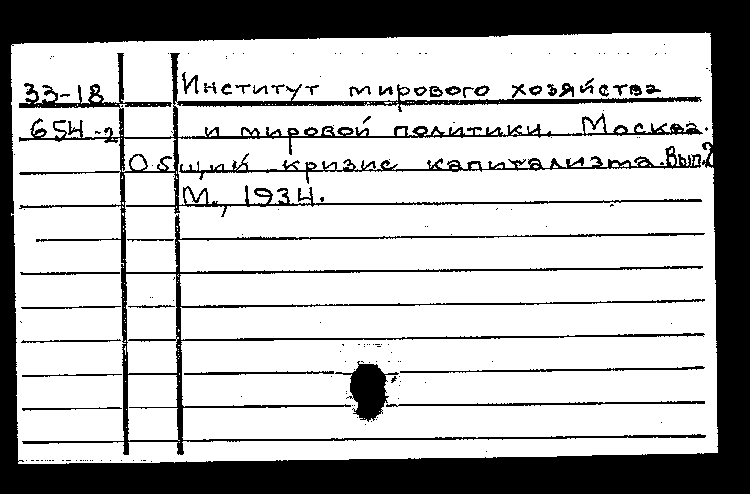 33-18 Институт мирового хозяйства
654-2 и мировой политики. Москва.
Общий кризис капитализма. Вып.2
М., 1934.